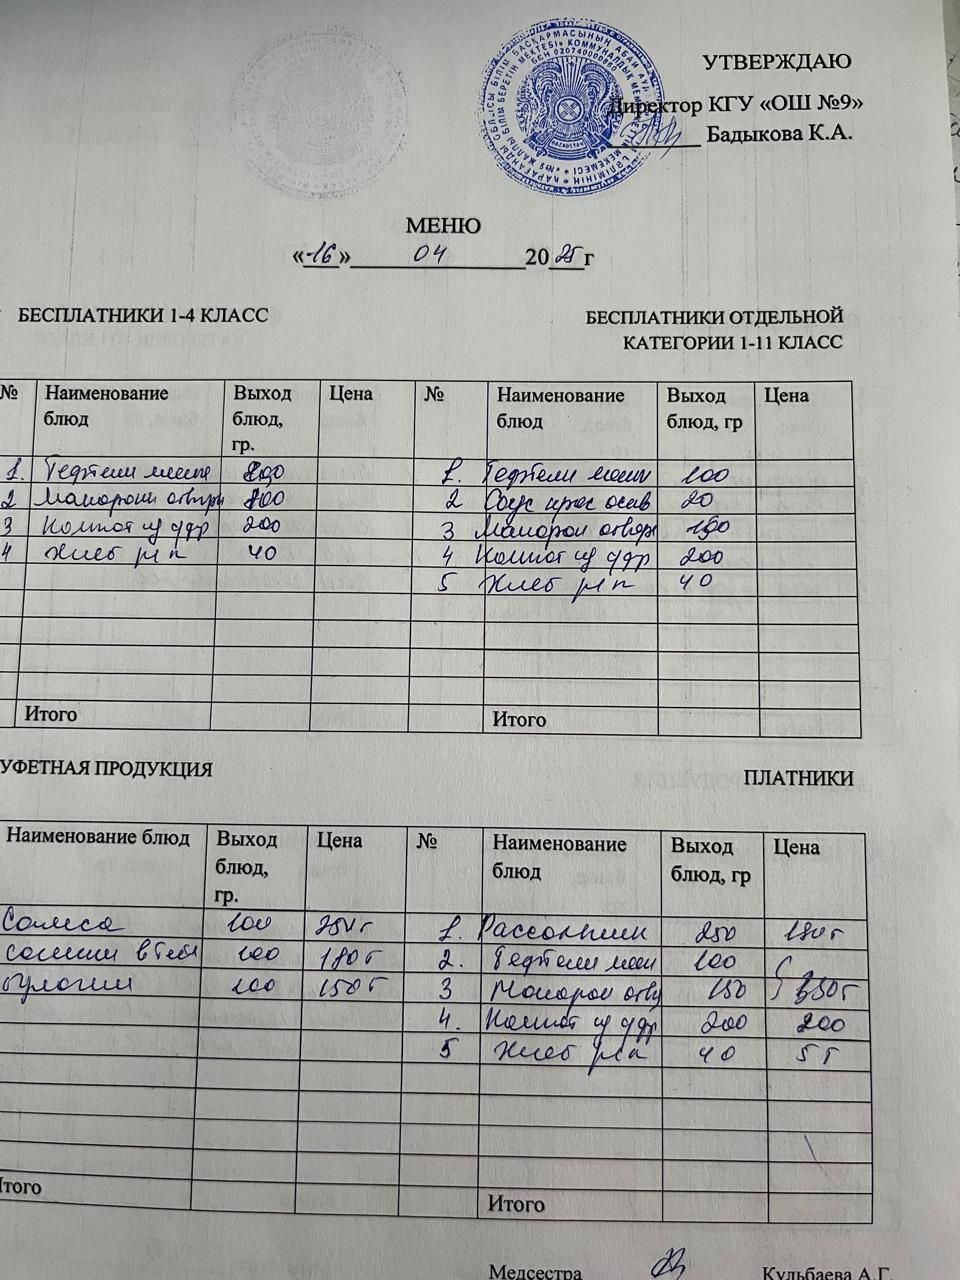 УТВЕРЖДАЮ
Директор КГУ «ОШ №9»
Бадыкова К.А.
МЕНЮ
«16» 04 2025 г
БЕСПЛАТНИКИ 1-4 КЛАСС
БЕСПЛАТНИКИ ОТДЕЛЬНОЙ
КАТЕГОРИИ 1-11 КЛАСС
№ Наименование блюд Выход блюд, гр. Цена № Наименование блюд Выход блюд, гр Цена
1. Тефтели 1. Тефтели 100
2 Макароны отварн 100 2 Соус 20
3 Компот из 200 3 Макарон отвар
4 Хлеб 40 4 Компот из 200
5 Хлеб 40
Итого Итого
УФЕТНАЯ ПРОДУКЦИЯ
ПЛАТНИКИ
Наименование блюд Выход блюд, гр. Цена № Наименование блюд Выход блюд, гр Цена
Самса 100 1. Рассольник 250 180т
сосиски в тесте 100 180т 2. Тефтели 100
100 150т 3 Макарон отва 150
4. Компот из 200 200
5 Хлеб 40 5т
Итого Итого
Медсестра Кульбаева А.Г